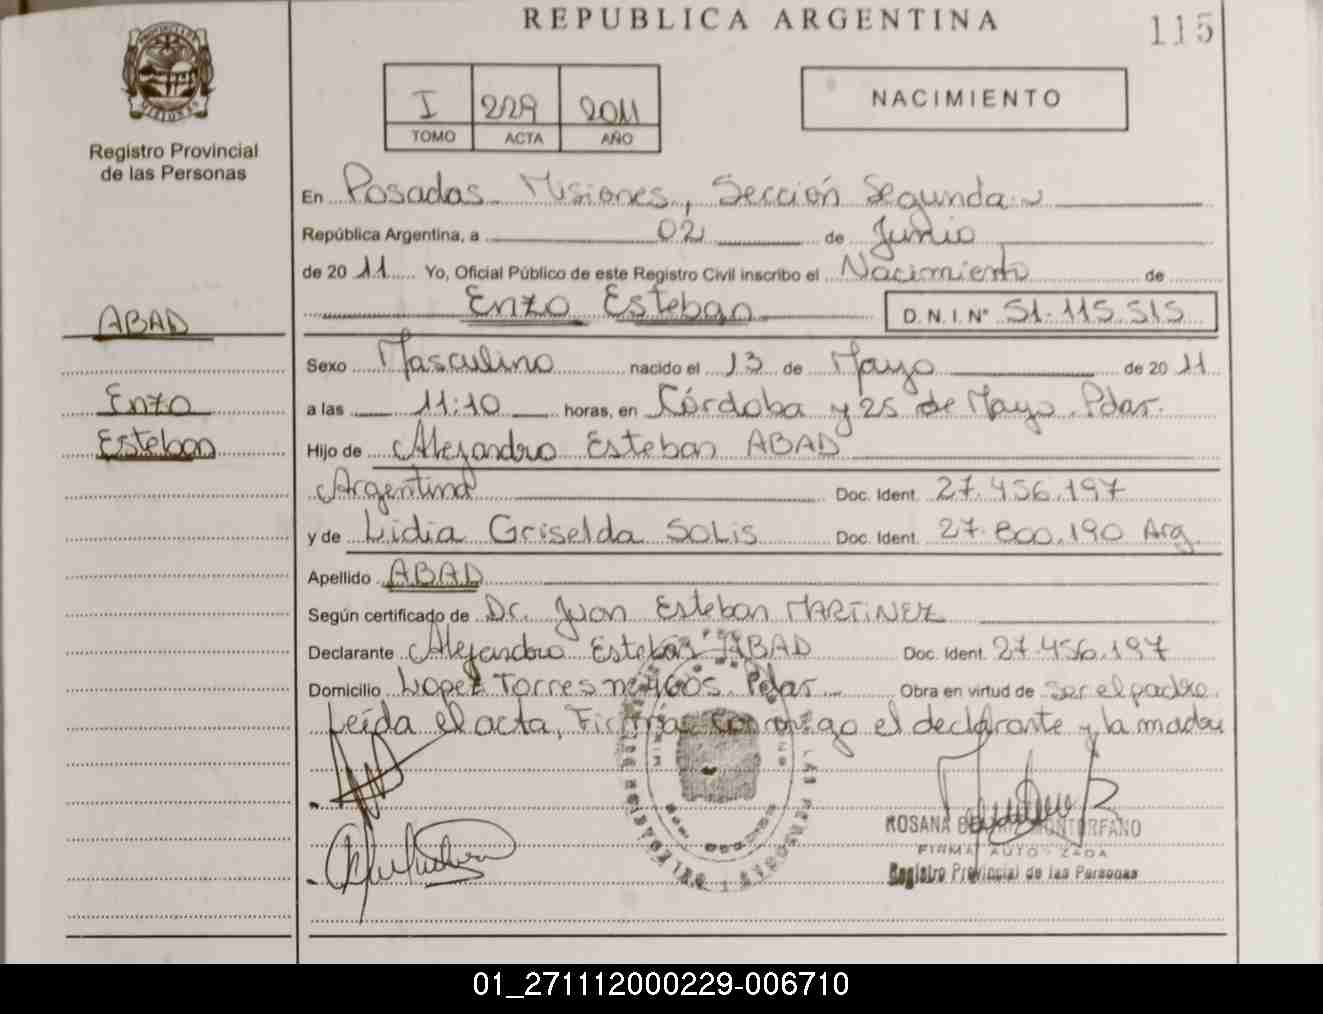 REPUBLICA ARGENTINA
115
Registro Provincial
de las Personas
I 229 2011
TOMO ACTA AÑO
NACIMIENTO
En Posadas Misiones, Sección Segunda
República Argentina, a 02 de Junio
de 2011 Yo, Oficial Público de este Registro Civil inscribo el Nacimiento de
Enzo Esteban D.N.I. Nº 51.115.515
ABAD
Enzo
Esteban
Sexo Masculino nacido el 13 de Mayo de 2011
a las 11:10 horas, en Córdoba y 25 de Mayo. Pdas.
Hijo de Alejandro Esteban ABAD
Argentina Doc. Ident. 27.456.197
y de Lidia Griselda SOLIS Doc. Ident. 27.800.190 Arg
Apellido ABAD
Según certificado de Dr. Juan Esteban MARTINEZ
Declarante Alejandro Esteban ABAD Doc. Ident. 27.456.197
Domicilio Lopez Torres Pdas. Obra en virtud de ser el padre.
Leída el acta, conmigo el declarante y la madre
ROSANA MONTORFANO
FIRMA AUTORIZADA
Registro Provincial de las Personas
01_271112000229-006710